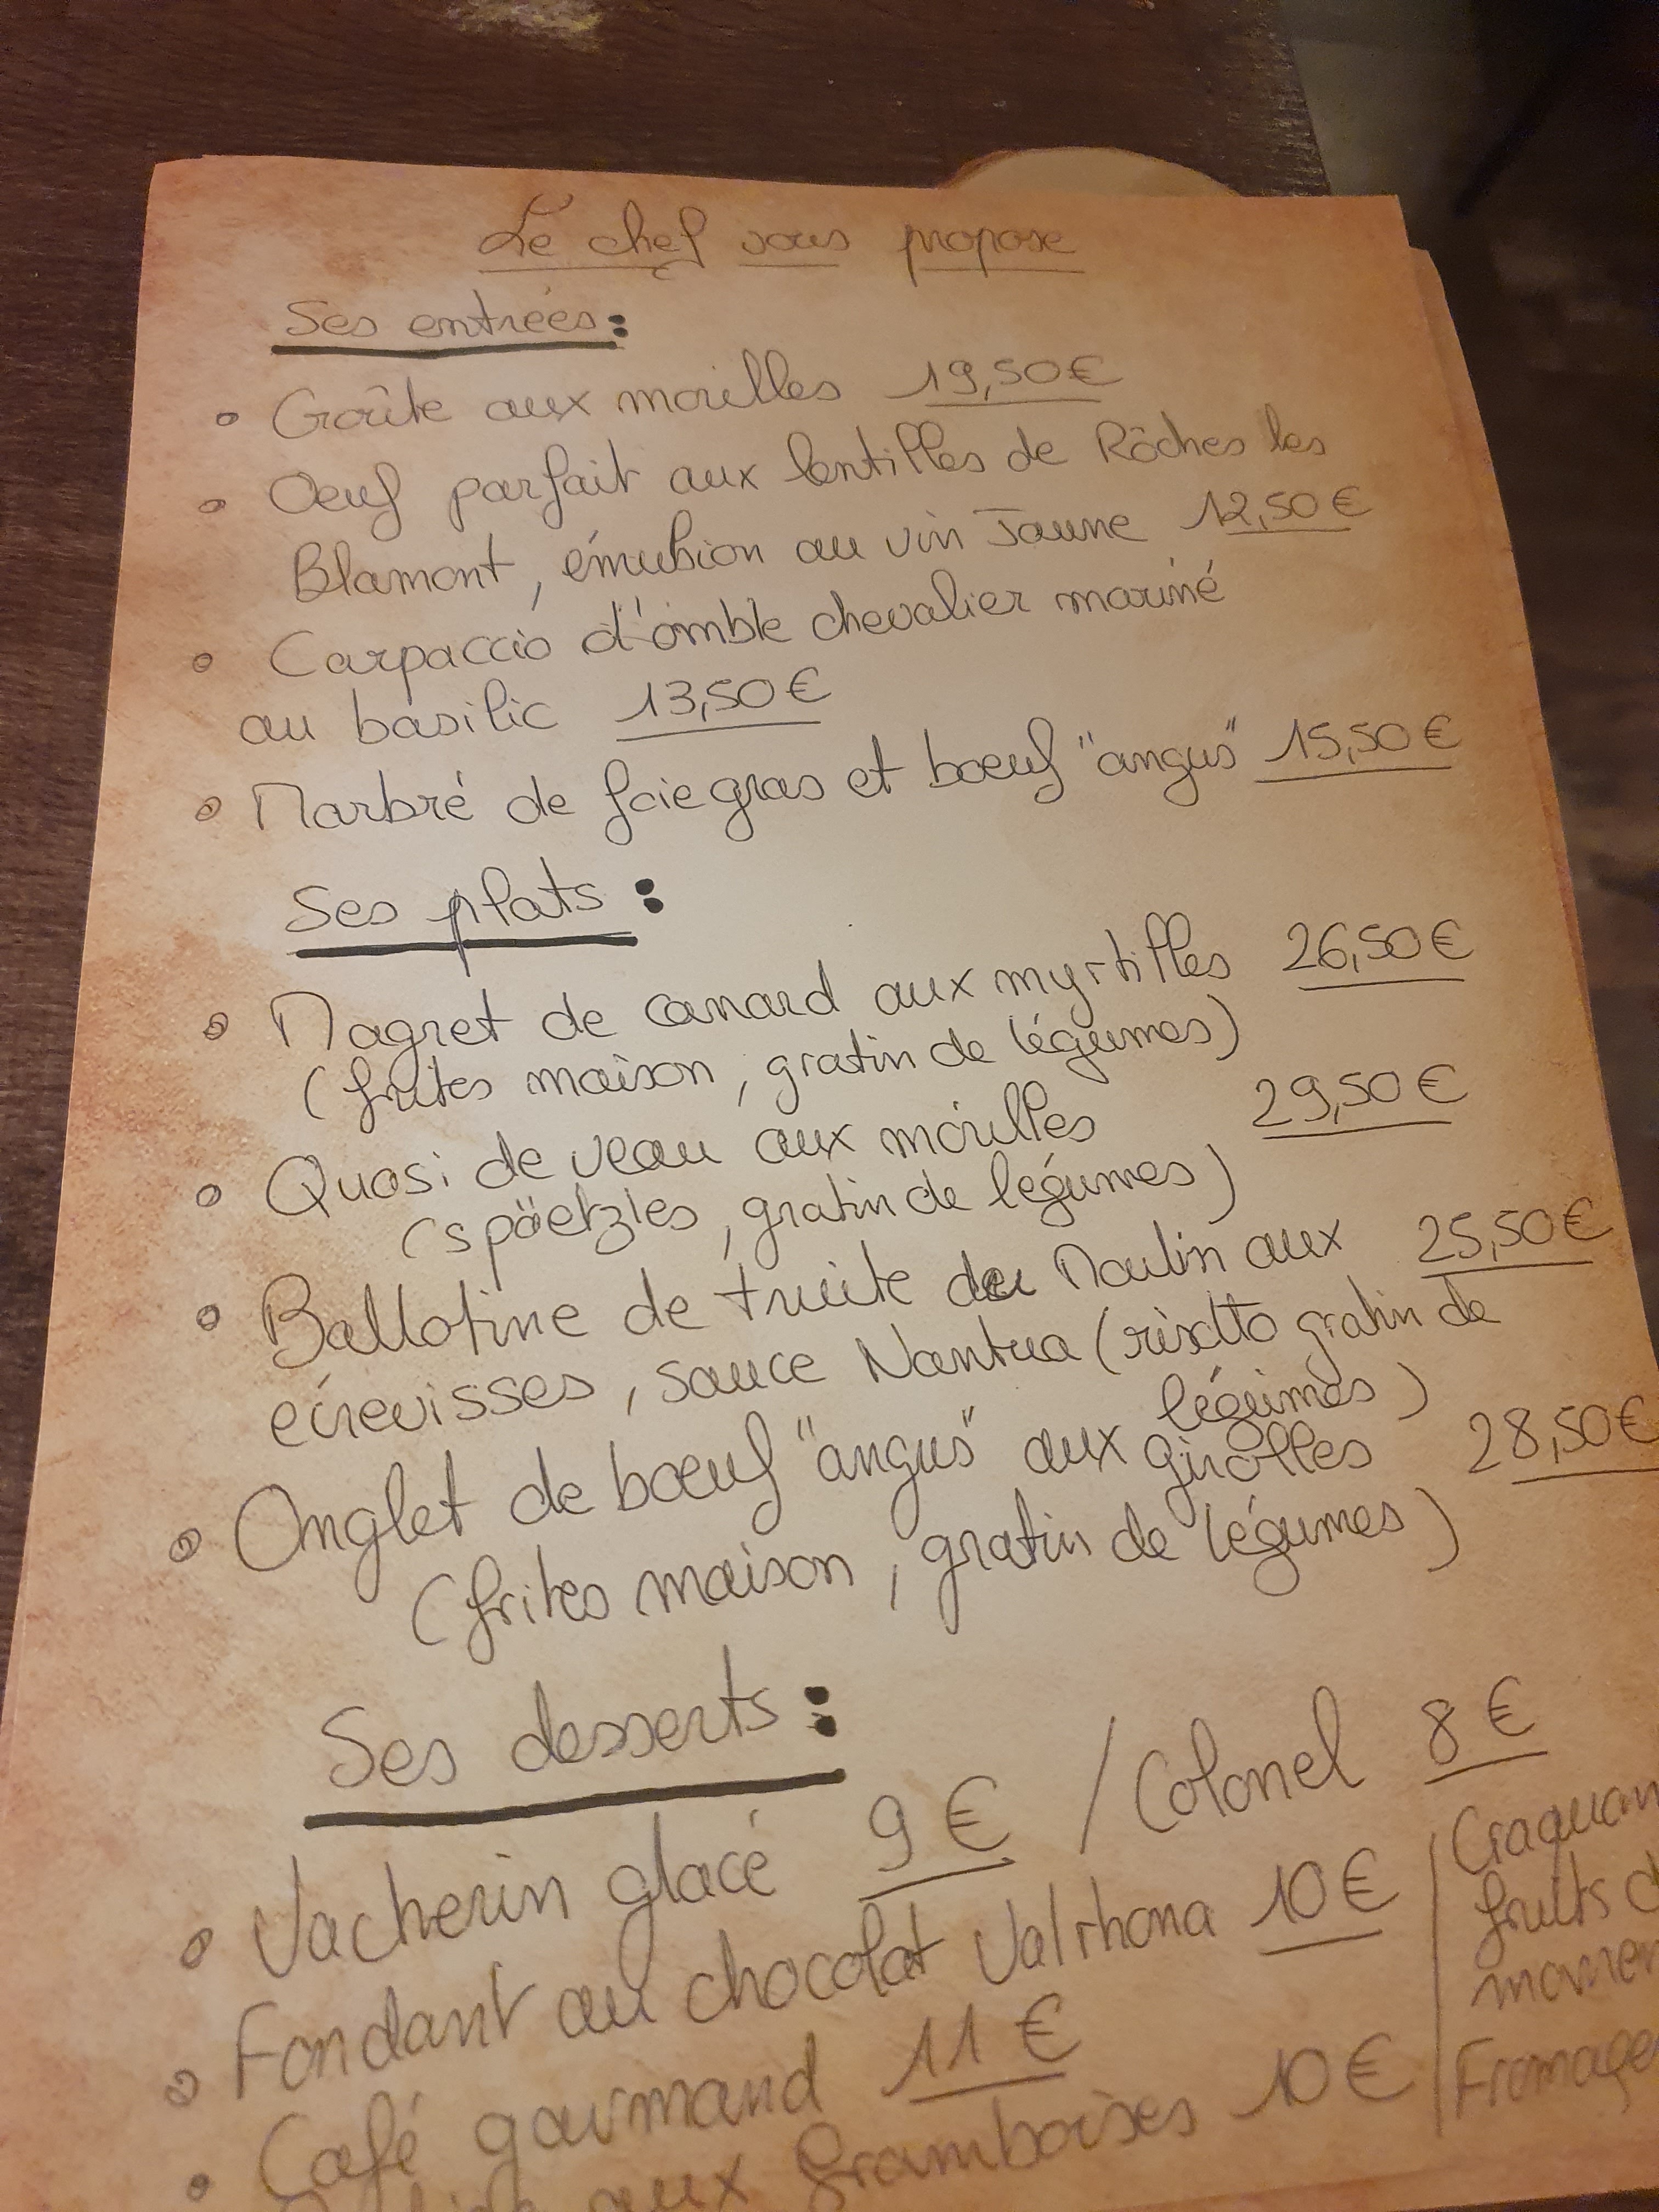 Le chef vous propose
Ses entrées :
Croûte aux morilles 19,50€
Oeuf parfait aux lentilles de Rôches les
Blamont, émulsion au vin Jaune 12,50€
Carpaccio d'omble chevalier mariné
au basilic 13,50€
Marbré de foie gras et boeuf "angus" 15,50€
Ses plats :
Magret de canard aux myrtilles 26,50€
(frites maison, gratin de légumes)
Quasi de veau aux morilles 29,50€
(späetzles, gratin de légumes)
Ballotine de truite du Moulin aux 25,50€
écrevisses, sauce Nantua (risotto gratin de
légumes)
Onglet de boeuf "angus" aux girolles 28,50€
(frites maison, gratin de légumes)
Ses desserts :
Vacherin glacé 9€ / Colonel 8€
Fondant au chocolat Valrhona 10€
Café gourmand 11€
aux framboises 10€
Craquan
fruits d
momen
Fromage